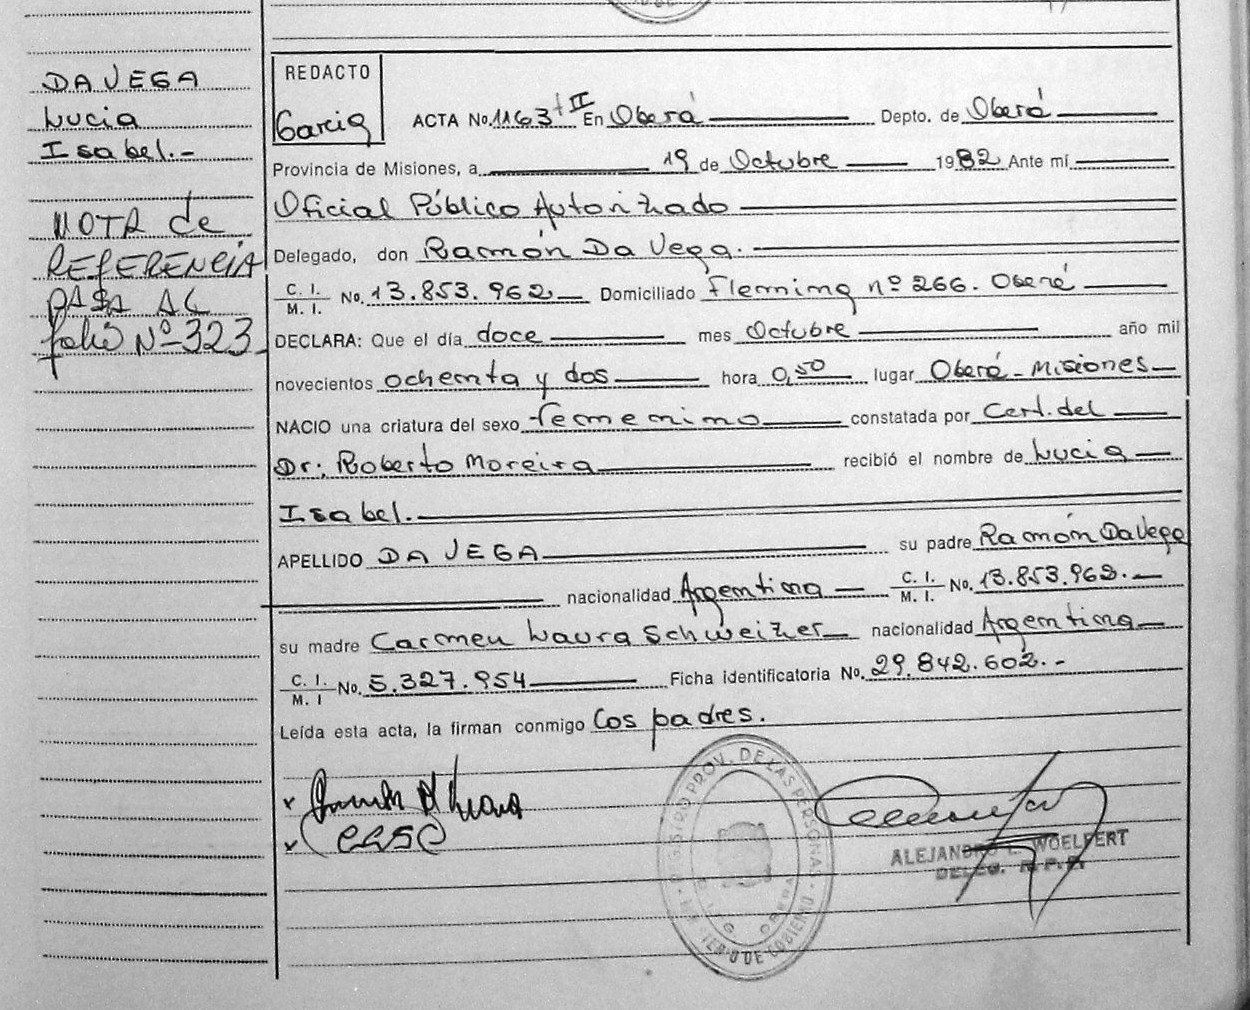 DA VEGA
Lucia
Isabel.-
NOTA de
REFERENCIA
PASA AL
folio Nº 323
REDACTO
Garcia
ACTA No. 1163 t II En Oberá Depto. de Oberá
Provincia de Misiones, a 19 de Octubre 1982 Ante mí
Oficial Público Autorizado
Delegado, don Ramón Da Vega.
C. I. M. I. No. 13.853.962 Domiciliado Fleming nº 266. Oberá
DECLARA: Que el día doce mes Octubre año mil
novecientos ochenta y dos hora 0,50 lugar Oberá - Misiones
NACIO una criatura del sexo femenino constatada por Cert. del
Dr: Roberto Moreira recibió el nombre de Lucia
Isabel.
APELLIDO DA VEGA su padre Ramón Da Vega
nacionalidad Argentina C. I. M. I. No. 13.853.962.-
su madre Carmen Laura Schweizer nacionalidad Argentina
C. I. M. I No. 5.327.954 Ficha identificatoria No. 29.842.602.-
Leída esta acta, la firman conmigo los padres.
REGISTRO PROV. DE LAS PERSONAS
MINISTERIO DE GOBIERNO
DELEG. OBERA
ALEJANDRO L. WOELFERT
DELEG. R. P. P.